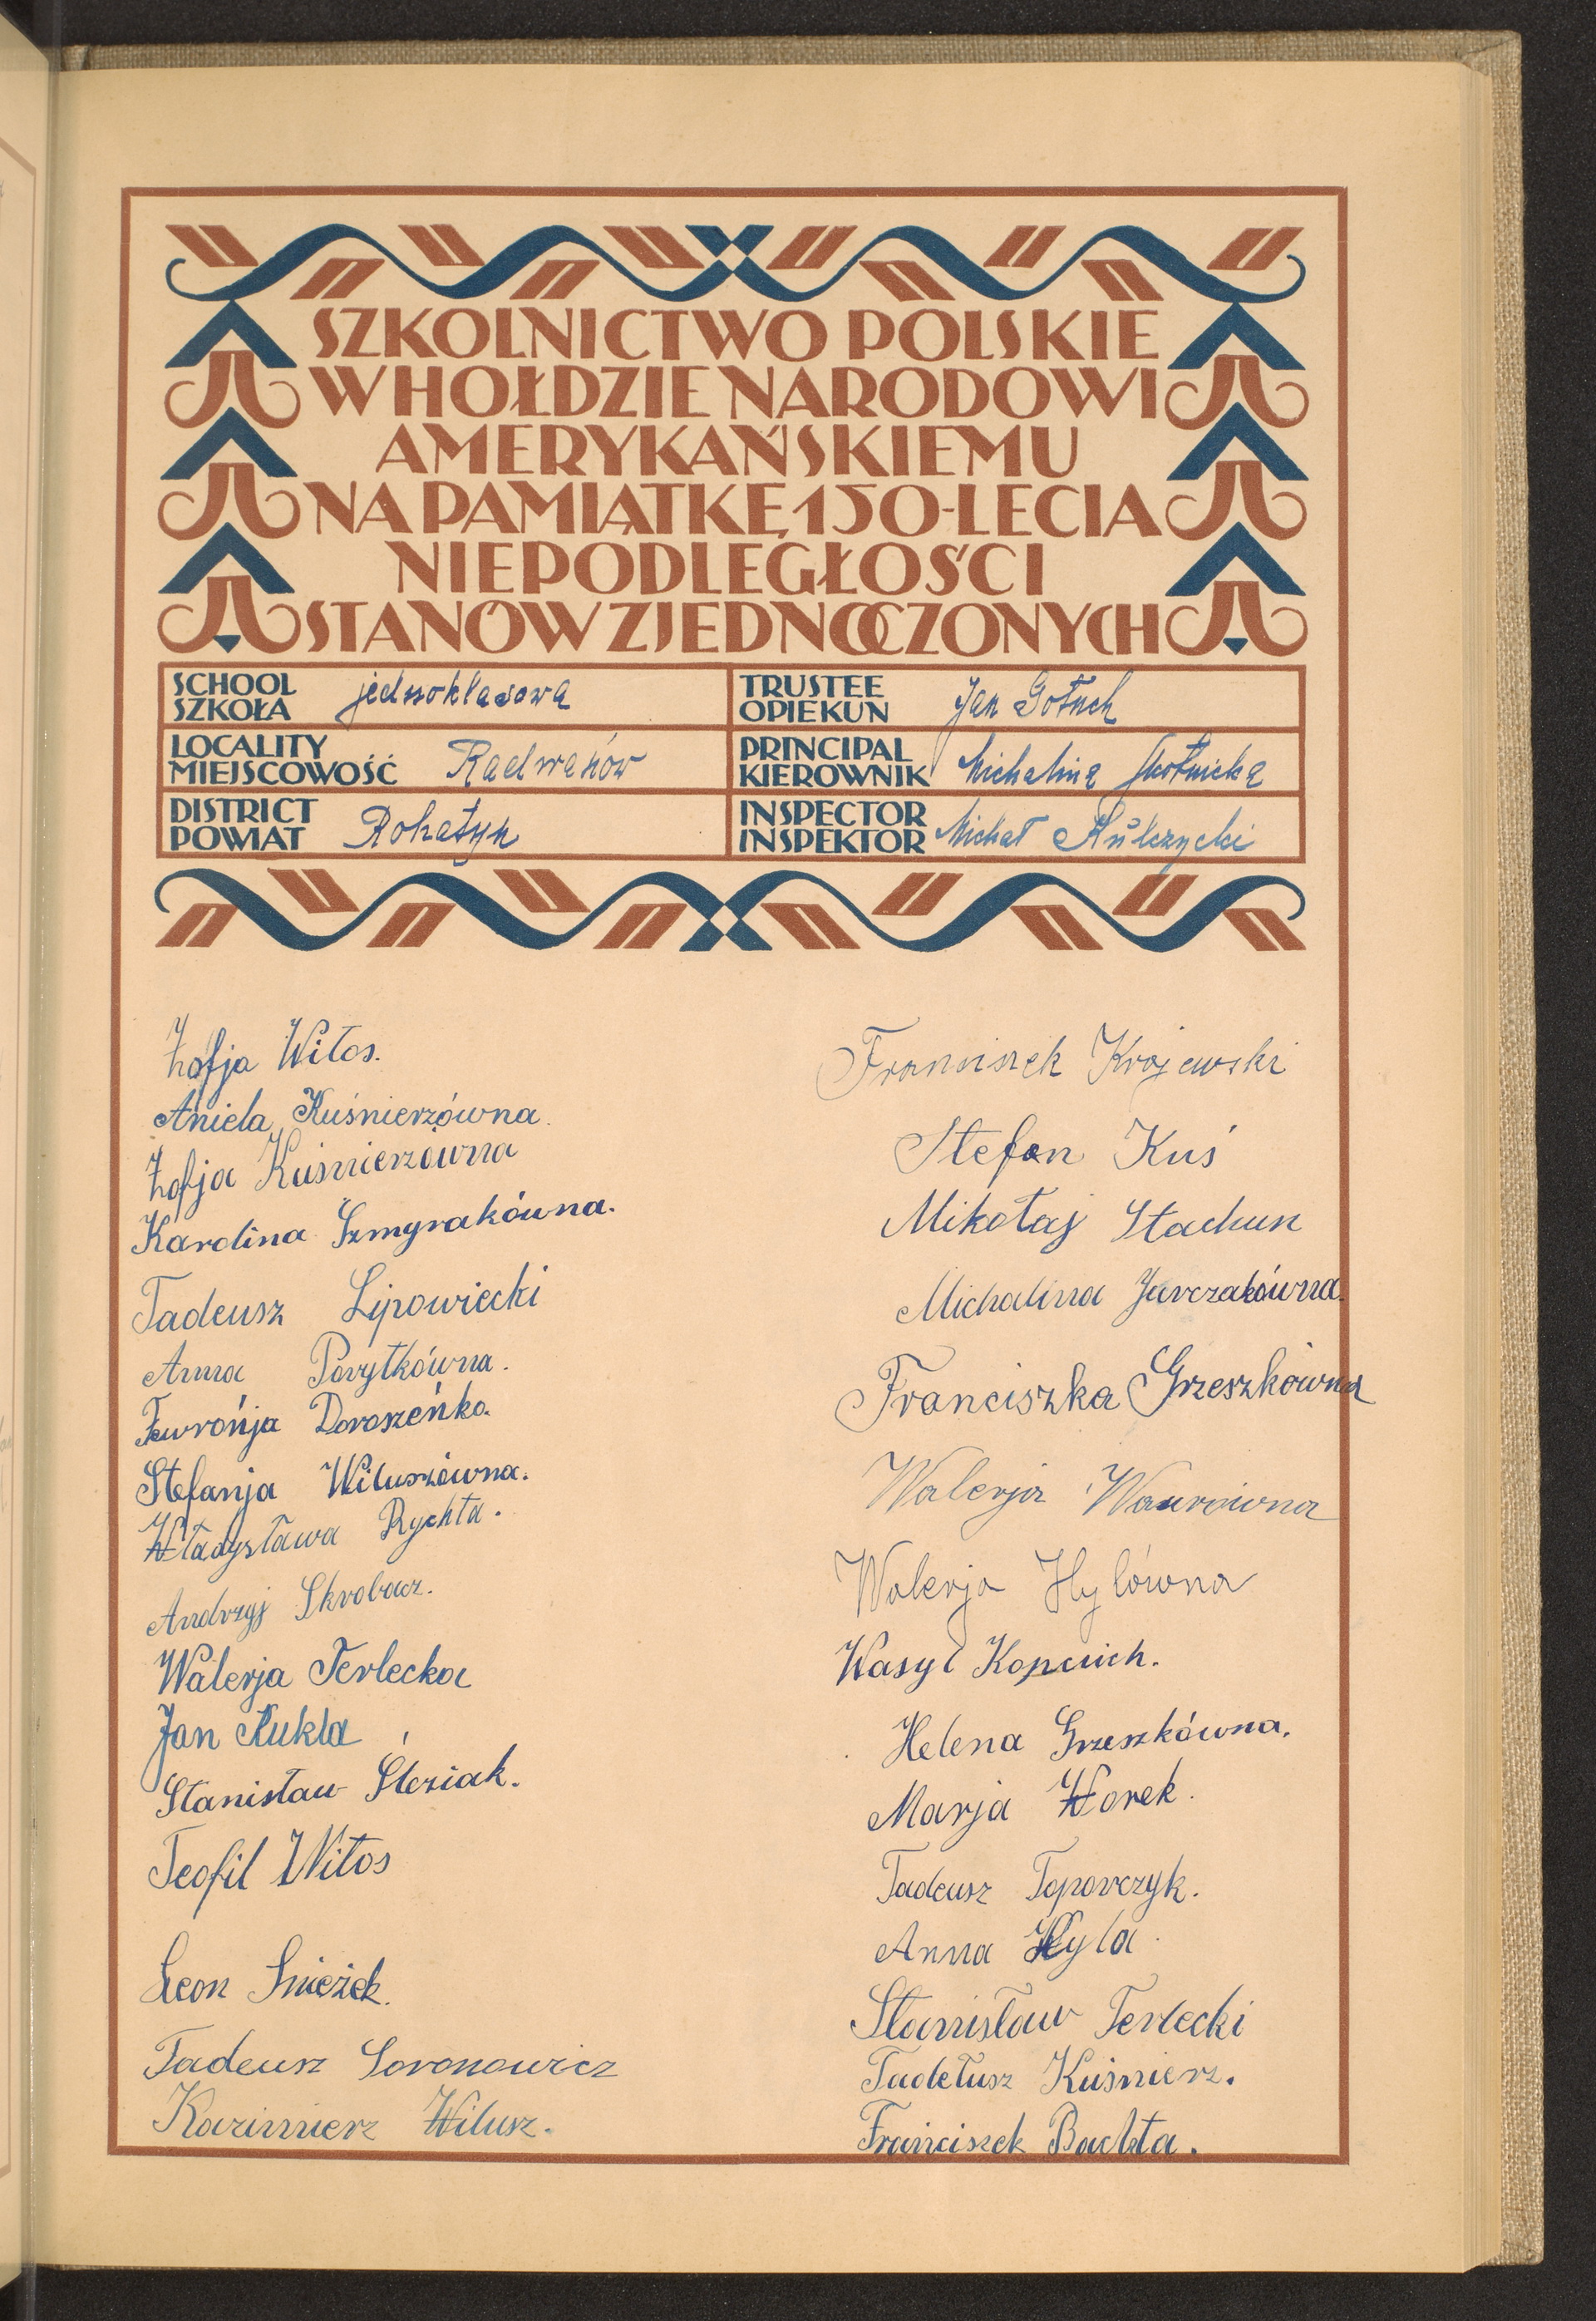 SZKOLNICTWO POLSKIE
W HOŁDZIE NARODOWI
AMERYKAŃSKIEMU
NA PAMIĄTKĘ 150-LECIA
NIEPODLEGŁOŚCI
STANÓW ZJEDNOCZONYCH
SCHOOL
SZKOŁA jednoklasowa
TRUSTEE
OPIEKUN Jan Gołuch
LOCALITY
MIEJSCOWOŚĆ Radwanów
PRINCIPAL
KIEROWNIK Michalina
DISTRICT
POWIAT Rohatyn
INSPECTOR
INSPEKTOR Michał Kulczycki
Zofja Witos.
Aniela Kuśnierzówna.
Zofja Kuśnierzówna
Karolina Szmyrakówna.
Tadeusz Lipowiecki
Anna Porytkówna.
Fewrońja Doroszeńko.
Stefanja Wiluszówna.
Władysława Rychta.
Andrzyj Skrobacz.
Walerja Terlecka
Jan Kukla
Stanisław Śleziak.
Teofil Witos
Leon Snieżek.
Tadeusz Soronowicz
Kazimierz Wilusz.
Franciszek Krajewski
Stefan Kuś
Mikołaj Stachun
Michalina Jurczakówna.
Franciszka Grzeszkówna
Walerja Wawrówna
Walerja Hylówna
Wasyl
Helena Grzeszkówna.
Marja Worek.
Tadeusz Toporczyk.
Anna Hyla.
Stanisław Terlecki
Tadeusz Kuśnierz.
Franciszek Bachta.